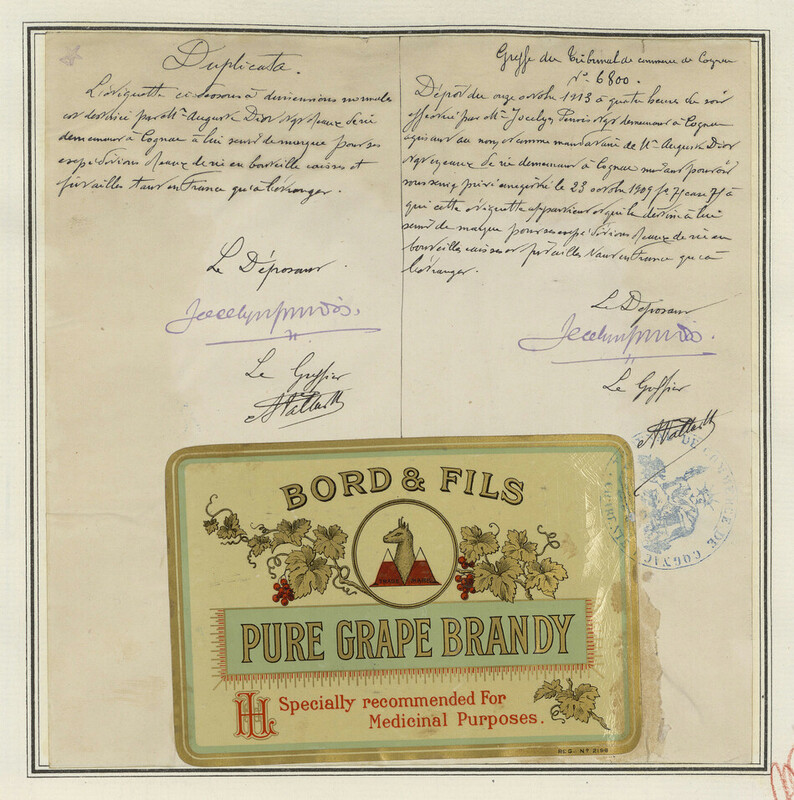 Duplicata.
L'étiquette ci-dessous à dimensions normales
est destinée par Mr Auguste Dior Ngt eaux de vie
demeurant à Cognac à lui servir de marque pour ses
expéditions d'eaux de vie en bouteilles caisses et
futailles tant en France qu'à l'étranger.
Le Déposant
Le Greffier
Greffe du Tribunal de commerce de Cognac
N° 6800.
Dépôt du onze octobre 1913 à quatre heures du soir
effectué par Mr Jocelyn Ngt demeurant à Cognac
agissant au nom et comme mandataire de Mr Auguste Dior
Ngt en eaux de vie demeurant à Cognac suivant pouvoir
sous seing privé enregistré le 23 octobre 1909 à
qui cette étiquette appartient et qui la destine à lui
servir de marque pour ses expéditions d'eaux de vie en
bouteilles caisses et futailles tant en France qu'à
l'étranger.
Le Déposant
Le Greffier
DE COMMERCE DE COGNAC
BORD & FILS
TRADE MARK
PURE GRAPE BRANDY
Specially recommended For
Medicinal Purposes.
REG. N° 2198